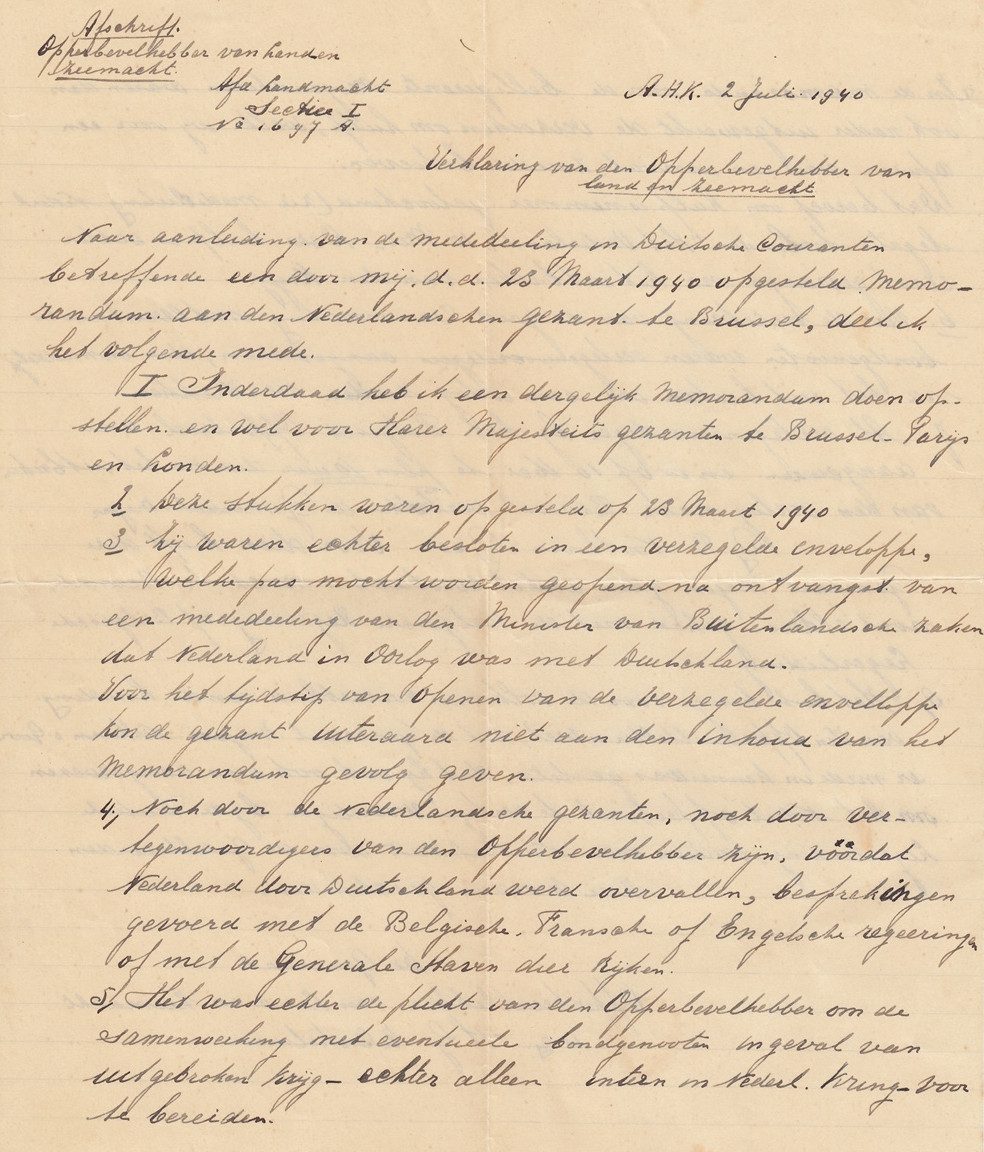 Afschrift.
Opperbevelhebber van Landen
Zeemacht.
Afd Landmacht
Sectie I
No 1697 A.
A.H.K. 2 Juli. 1940
Verklaring van den Opperbevelhebber van
land en zeemacht
Naar aanleiding van de mededeeling in Duitsche Couranten
betreffende een door mij, d.d. 23 Maart 1940 opgesteld Memo-
randum. aan den Nederlandschen gezant. te Brussel, deel ik
het volgende mede.
I Inderdaad heb ik een dergelijk Memorandum doen op-
stellen. en wel voor Harer Majesteits gezanten te Brussel-Parijs
en Londen.
2 Deze stukken waren opgesteld op 23 Maart 1940
3 Zij waren echter besloten in een verzegelde enveloppe,
welke pas mocht worden geopend na ontvangst van
een mededeeling van den Minister van Buitenlandsche zaken
dat Nederland in Oorlog was met Duitschland.
Voor het tijdstip van openen van de verzegelde envelloppe
kon de gezant uiteraard niet aan den inhoud van het
Memorandum gevolg geven.
4, Noch door de Nederlandsche gezanten, noch door ver-
tegenwoordigers van den Opperbevelhebber zijn, vóórdat
Nederland door Duitschland werd overvallen, besprekingen
gevoerd met de Belgische, Fransche of Engelsche regeeringen
of met de Generale Staven dier Rijken.
5, Het was echter de plicht van den Opperbevelhebber om de
samenwerking met eventueele bondgenooten ingeval van
uitgebroken krijg- echter alleen intern in Nederl. Kring-voor
te bereiden.